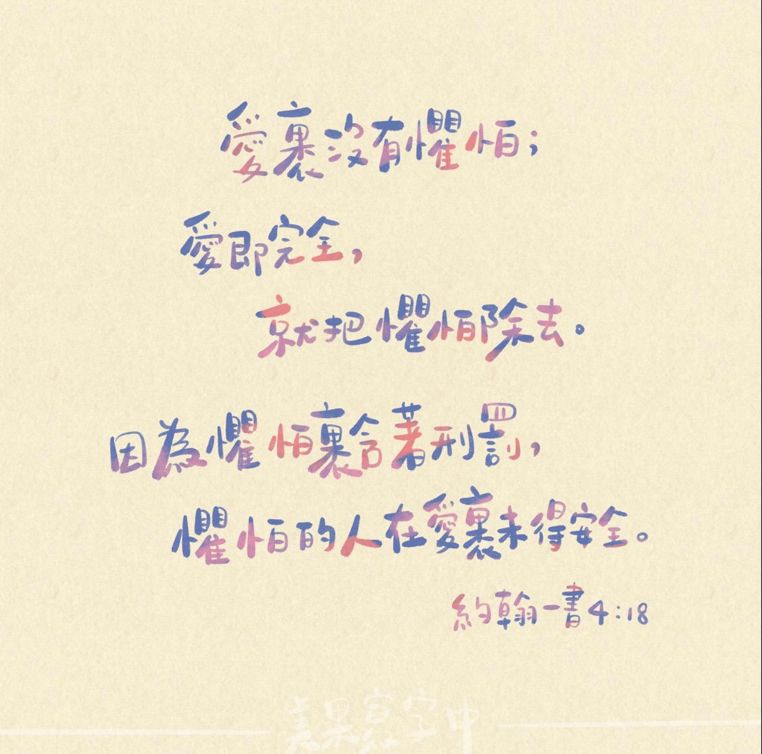 愛裏沒有懼怕；
愛即完全，
就把懼怕除去。
因為懼怕裏含著刑罰，
懼怕的人在愛裏未得安全。
約翰一書4:18
美果寫字中